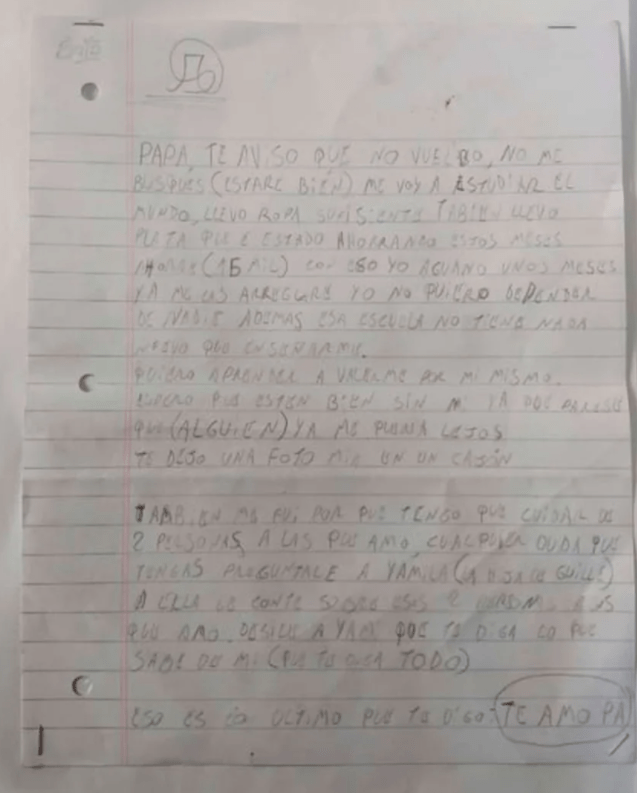 PAPA, TE AVISO QUE NO VUELBO, NO ME
BUSQUES (ESTARE BIEN) ME VOY A ESTUDIAR EL
MUNDO, LLEVO ROPA SUFISIENTE TABIEN LLEVO
PLATA QUE E ESTADO AHORRANDO ESTOS MESES
AHORRE (15 MIL) CON ESO YO AGUANO UNOS MESES
YA ME LAS ARREGLARE YO NO QUIERO DEPENDER
DE NADIE ADEMAS ESA ESCUELA NO TIENE NADA
NUEVO QUE ENSEÑARME.
QUIERO APRENDER A VALERME POR MI MISMO.
ESPERO QUE ESTEN BIEN SIN MI YA QUE PARESE
QUE (ALGUIEN) YA ME QUERIA LEJOS
TE DEJO UNA FOTO MIA EN UN CAJÓN
TAMBIEN ME FUI POR QUE TENGO QUE CUIDAR DE
2 PERSONAS A LAS QUE AMO, CUALQUIER DUDA QUE
TENGAS PREGUNTALE A YAMILA (LA HIJA DE GUILLE)
A ELLA LE CONTE SOBRE ESAS 2 PERSONAS A LAS
QUE AMO. DESILE A YAMI QUE TE DIGA LO QUE
SABE DE MI (QUE TE DIGA TODO)
ESO ES LO ULTIMO QUE TE DIGO: TE AMO PA